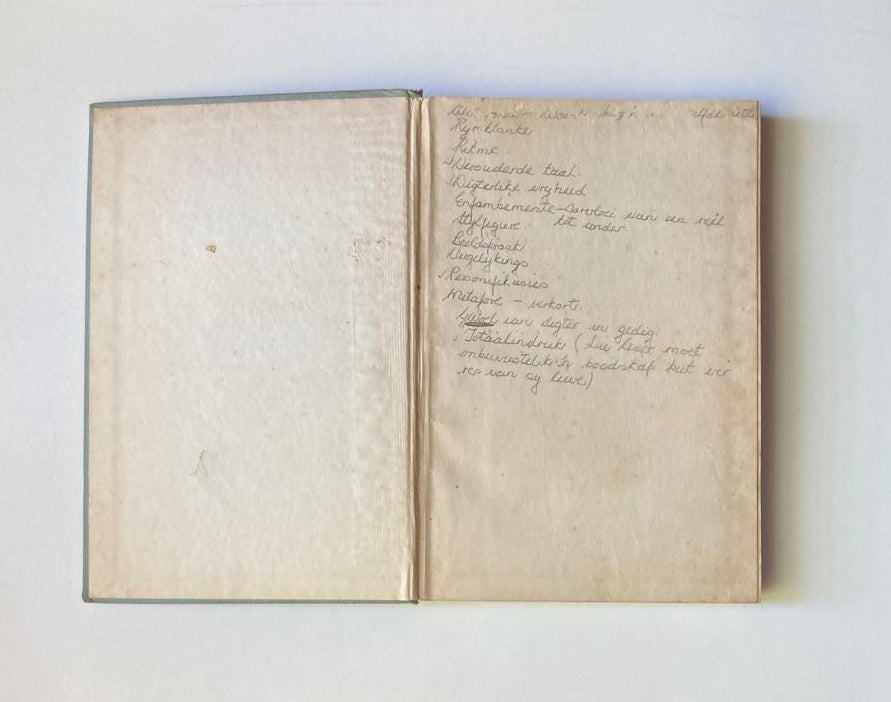 Rymklanke
Ritme
Verouderde taal
Digterlike vryheid
Enjambemente - Oorvloei van een reël
Stylfigure tot ander
Beeldspraak
Vergelykings
Personifikasies
Metafore - verkort.
Gevoel van digter in gedig.
Totaalindruk (Die leser moet
onbewustelik 'n boodskap put vir
res van sy lewe)